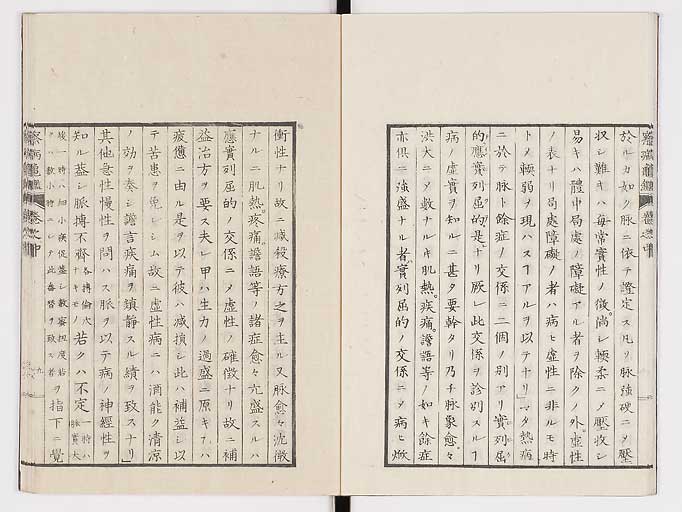 於ルカ如ク脉ニ依テ證定ス凡リ脉強硬ニメ壓
収シ難キハ毎常實性ノ徴尚シ輭柔ニメ壓収シ
易キハ體中局處ノ障礙アル者ヲ除クノ外虚性
ノ表ナリ局處障礙ノ者ハ病ヒ虚性ニ非ルモ時
トメ輭弱ヲ現ハスヿアルヲ以テナリ又タ熱病
ニ於テ脉ト餘症ノ交係ニ二個ノ別アリ實列屈
的應實列屈的是ナリ厥レ此交係ヲ診別スルヿ
病ノ虚實ヲ知ルニ甚タ要幹タリ乃チ脉象愈々
洪大ニメ數ナルキ肌熱疼痛譫語等ノ如キ餘症
亦倶ニ強盛ナル者實列屈的ノ交係ニメ病ヒ焮
衝性ナリ故ニ減殺療方之ヲ主ル又脉愈々沈微
ナルニ肌熱疼痛譫語等ノ諸症愈々亢盛スルハ
應實列屈的ノ交係ニメ虚性ノ確徴ナリ故ニ補
益治方ヲ要ス夫レ甲ハ生力ノ過盛ニ原キ乙ハ
疲憊ニ由ル是ヲ以テ彼ハ減損シ此ハ補益シ以
テ苦患ヲ免レシム故ニ虚性病ニハ酒能ク清涼
ノ効ヲ奏シ譫言疾痛ヲ鎮静スル績ヲ致スナリ
其他急性慢性ヲ問ハス脉ヲ以テ病ノ神經性ヲ
知ル蓋シ脉搏不齊 各搏倫次ナキモノ 若クハ不定 一時ハ脉實大
一時ハ細小 ヲ指下ニ覺